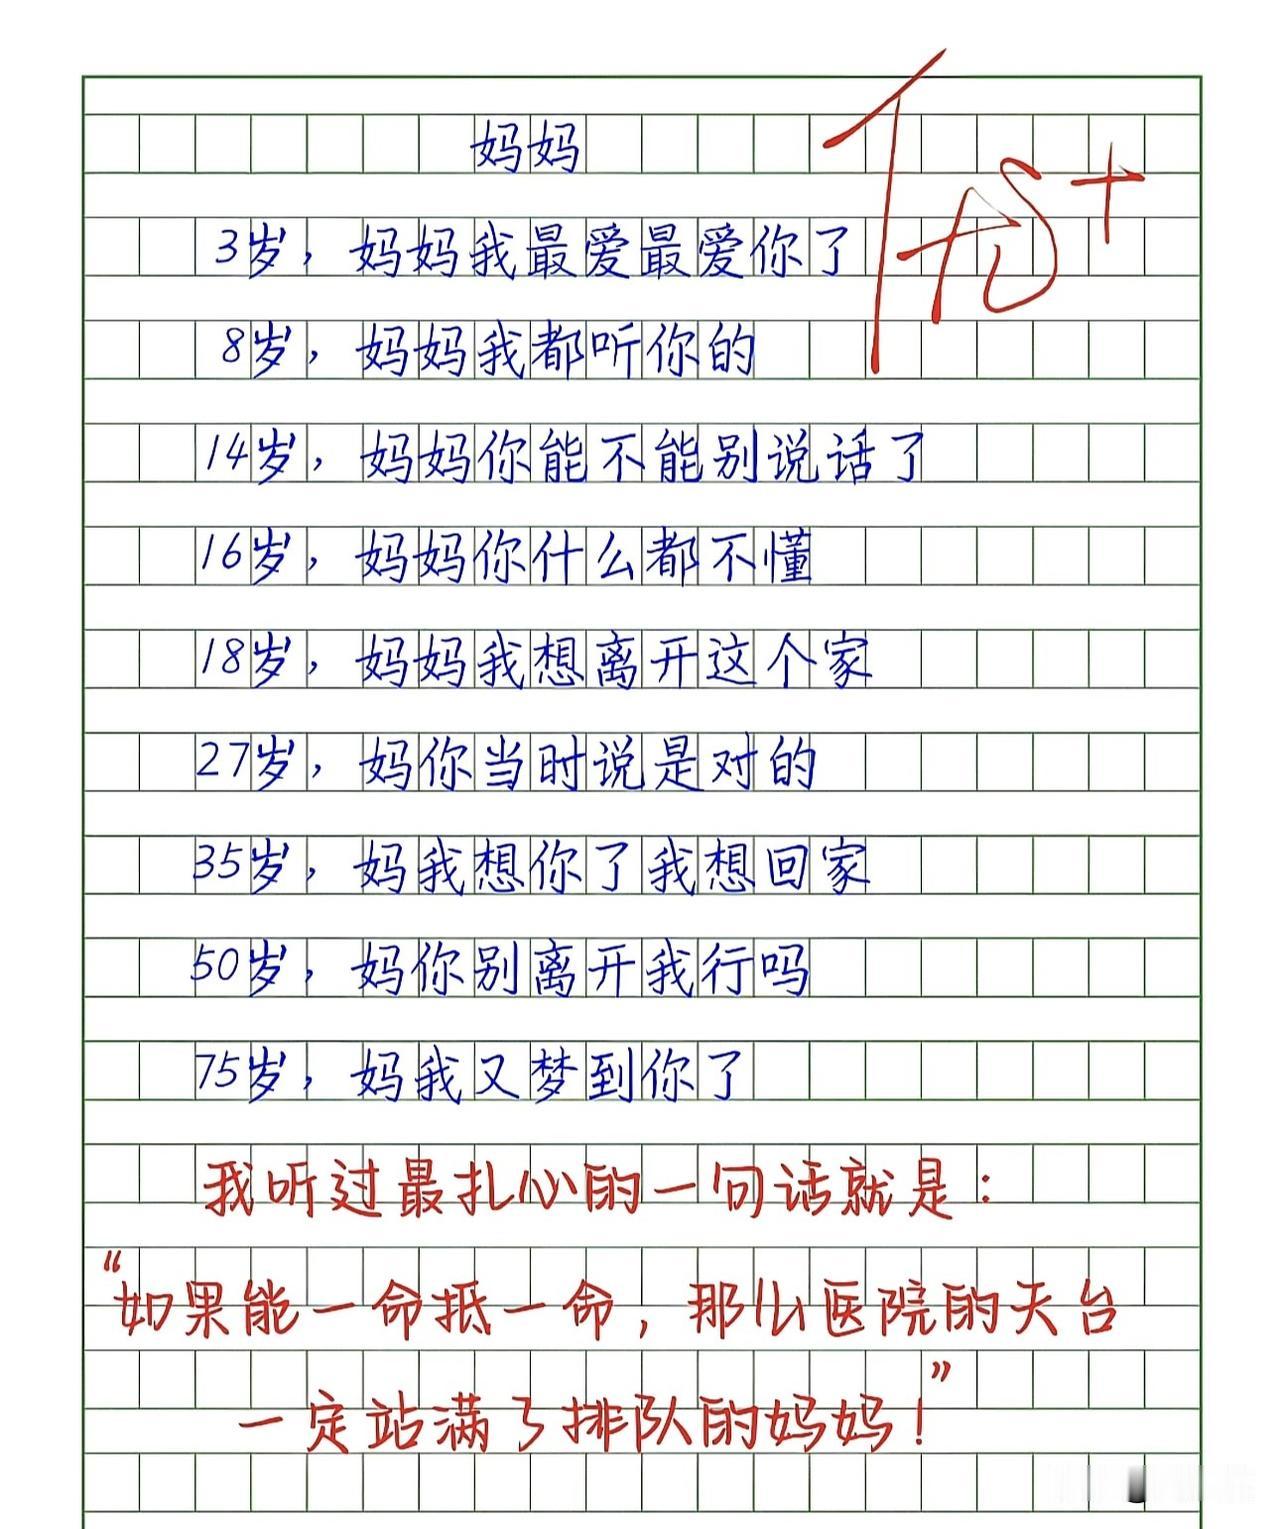 妈妈
3岁，妈妈我最爱最爱你了
8岁，妈妈我都听你的
14岁，妈妈你能不能别说话了
16岁，妈妈你什么都不懂
18岁，妈妈我想离开这个家
27岁，妈你当时说是对的
35岁，妈我想你了我想回家
50岁，妈你别离开我行吗
75岁，妈我又梦到你了
我听过最扎心的一句话就是：
“如果能一命抵一命，那么医院的天台
一定站满了排队的妈妈！”